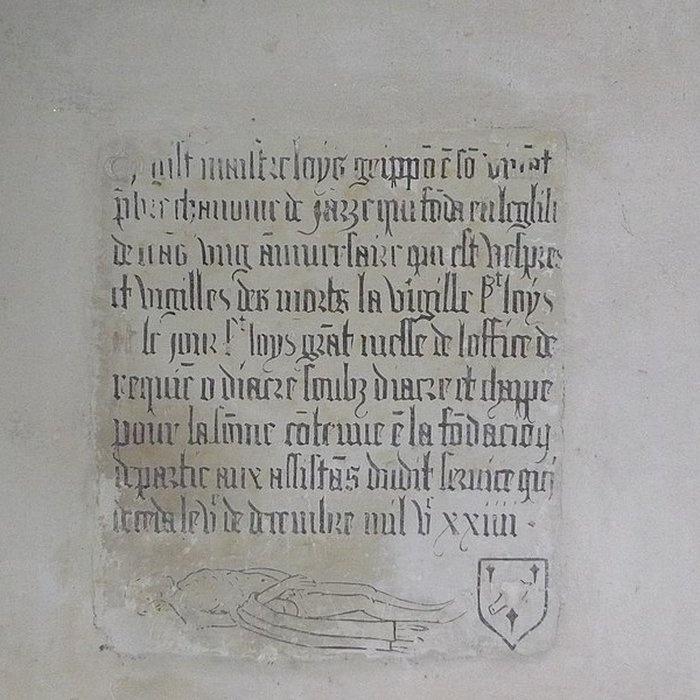 gist maistre loys grippō ē sō viuāt
p̄bre chanoine de jarze qui fōda en leglise
de cēās vng āniuersaire qui est vespres
et vigilles des morts la vigille sᵗ loys
le jour sᵗ loys grāt messe de loffice de
requiē o diacre soubz diacre et chappe
pour la sōme cōtenue ē la fōdacion
departie aux assistās dudit seruice qui
deceda le vᵉ de decembre mil vᶜ xxiiii